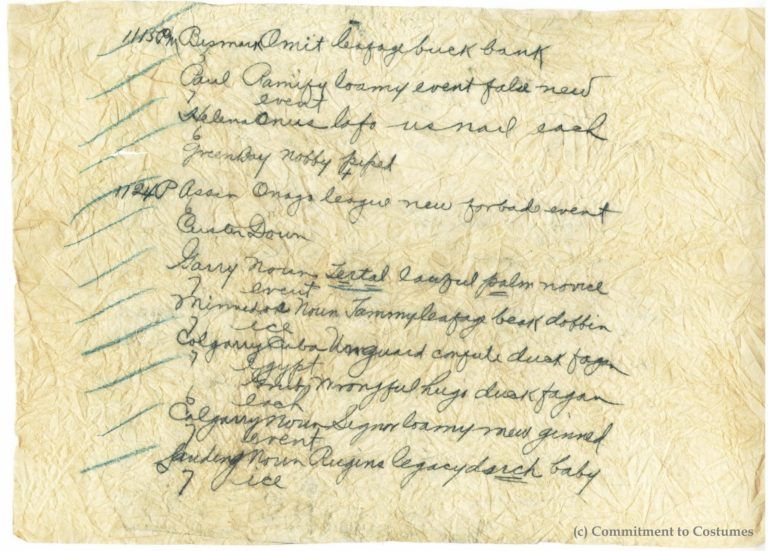 1113PM Bismark Omit leafage buck bank
Paul Ramify loamy event false new
7 event
Helena Onus lofo usnail each
6
Green Bay nobby piped
1124P Assin Onago league new forbad event
6
Custer Down
Garry Noun Tertal lawful palm novice
7 event
Minnedos Noun Jammyleafage beak dobbin
7 ice
Calgarry Cuba Unguard confute duck fagan
7 Egypt
Wrongful hugo duck fagan
each
Calgarry Noun Signor loamy new ginned
7 event
Landing Noun Rugins legacy duch baby
7 ice
(c) Commitment to Costumes